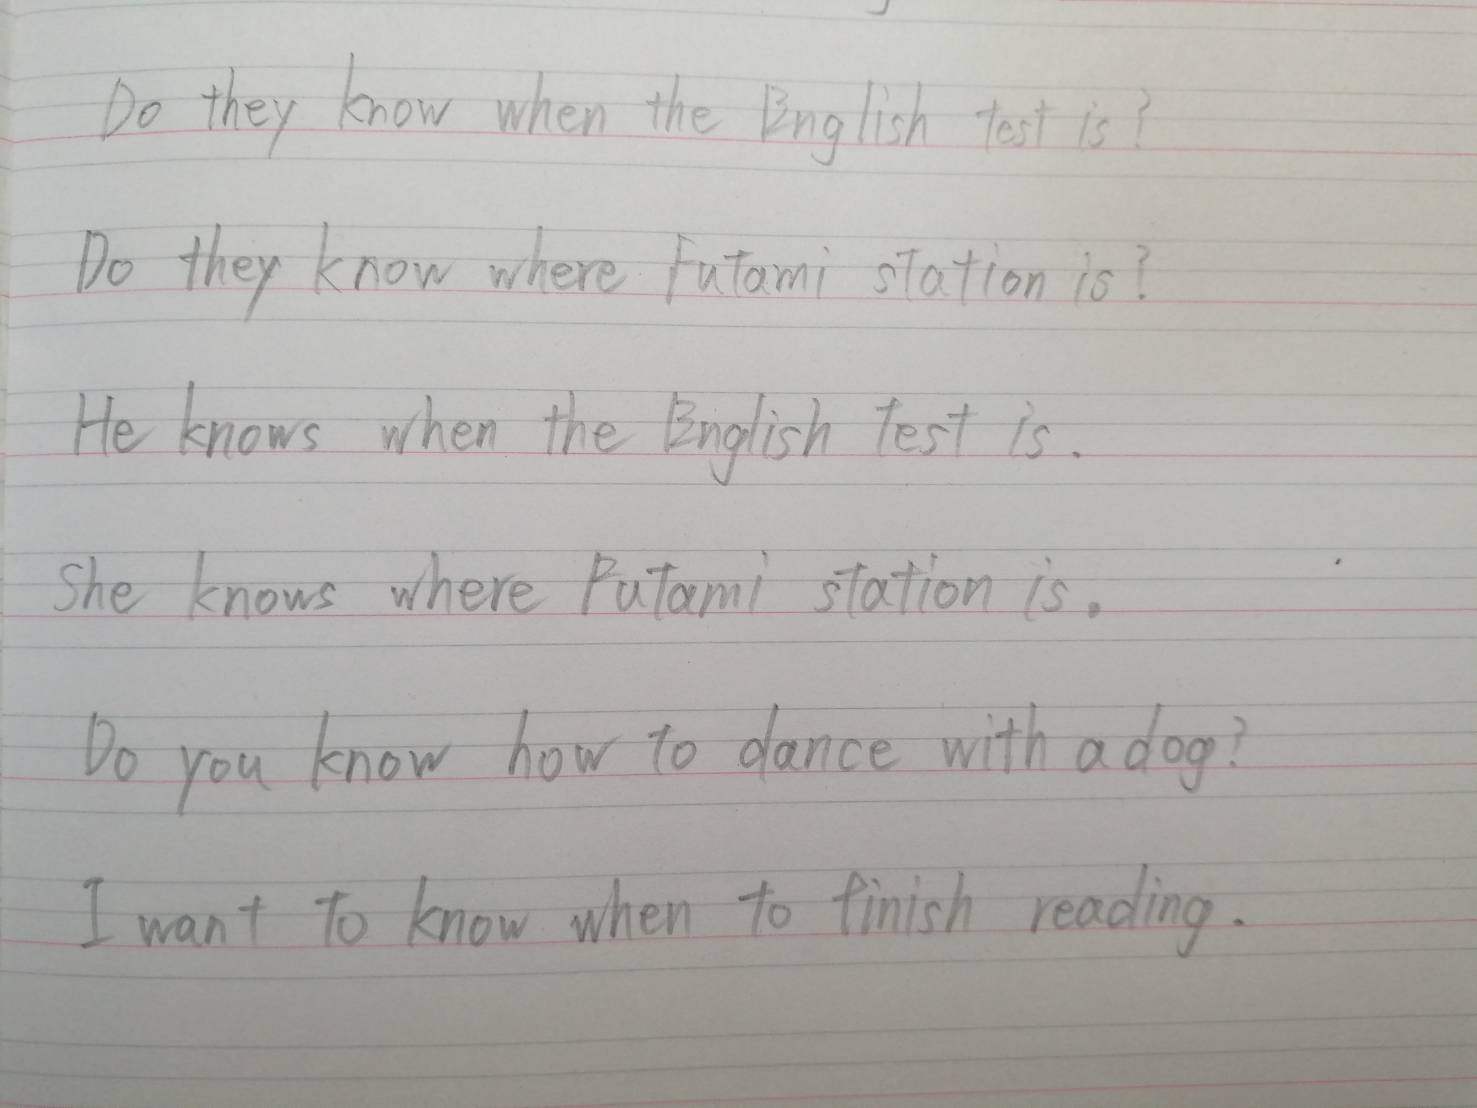 Do they know when the English test is?
Do they know where Futami station is?
He knows when the English test is.
She knows where Futami station is.
Do you know how to dance with a dog?
I want to know when to finish reading.